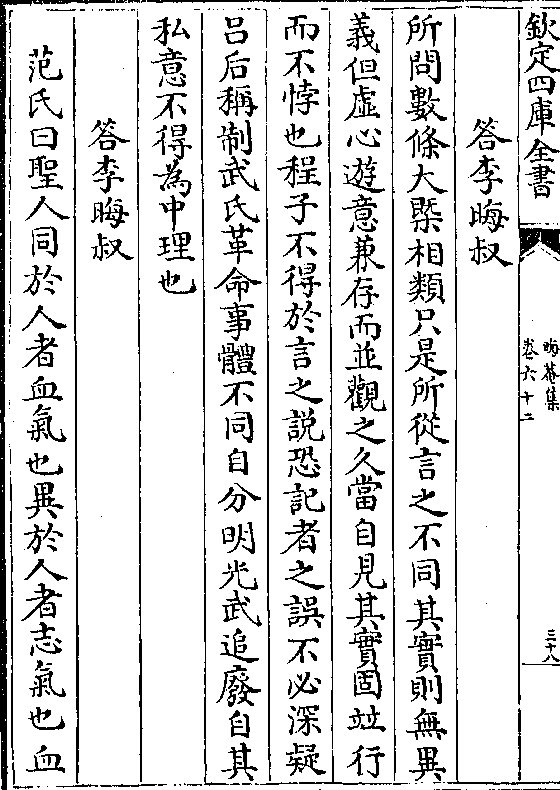 欽定四庫全書
晦菴集
卷六十二
三十八
答李晦叔
所問數條大槩相類只是所從言之不同其實則無異
義但虛心遊意兼存而並觀之久當自見其實固竝行
而不悖也程子不得於言之説恐記者之誤不必深疑
吕后稱制武氏革命事體不同自分明光武追廢自其
私意不得為中理也
答李晦叔
范氏曰聖人同於人者血氣也異於人者志氣也血